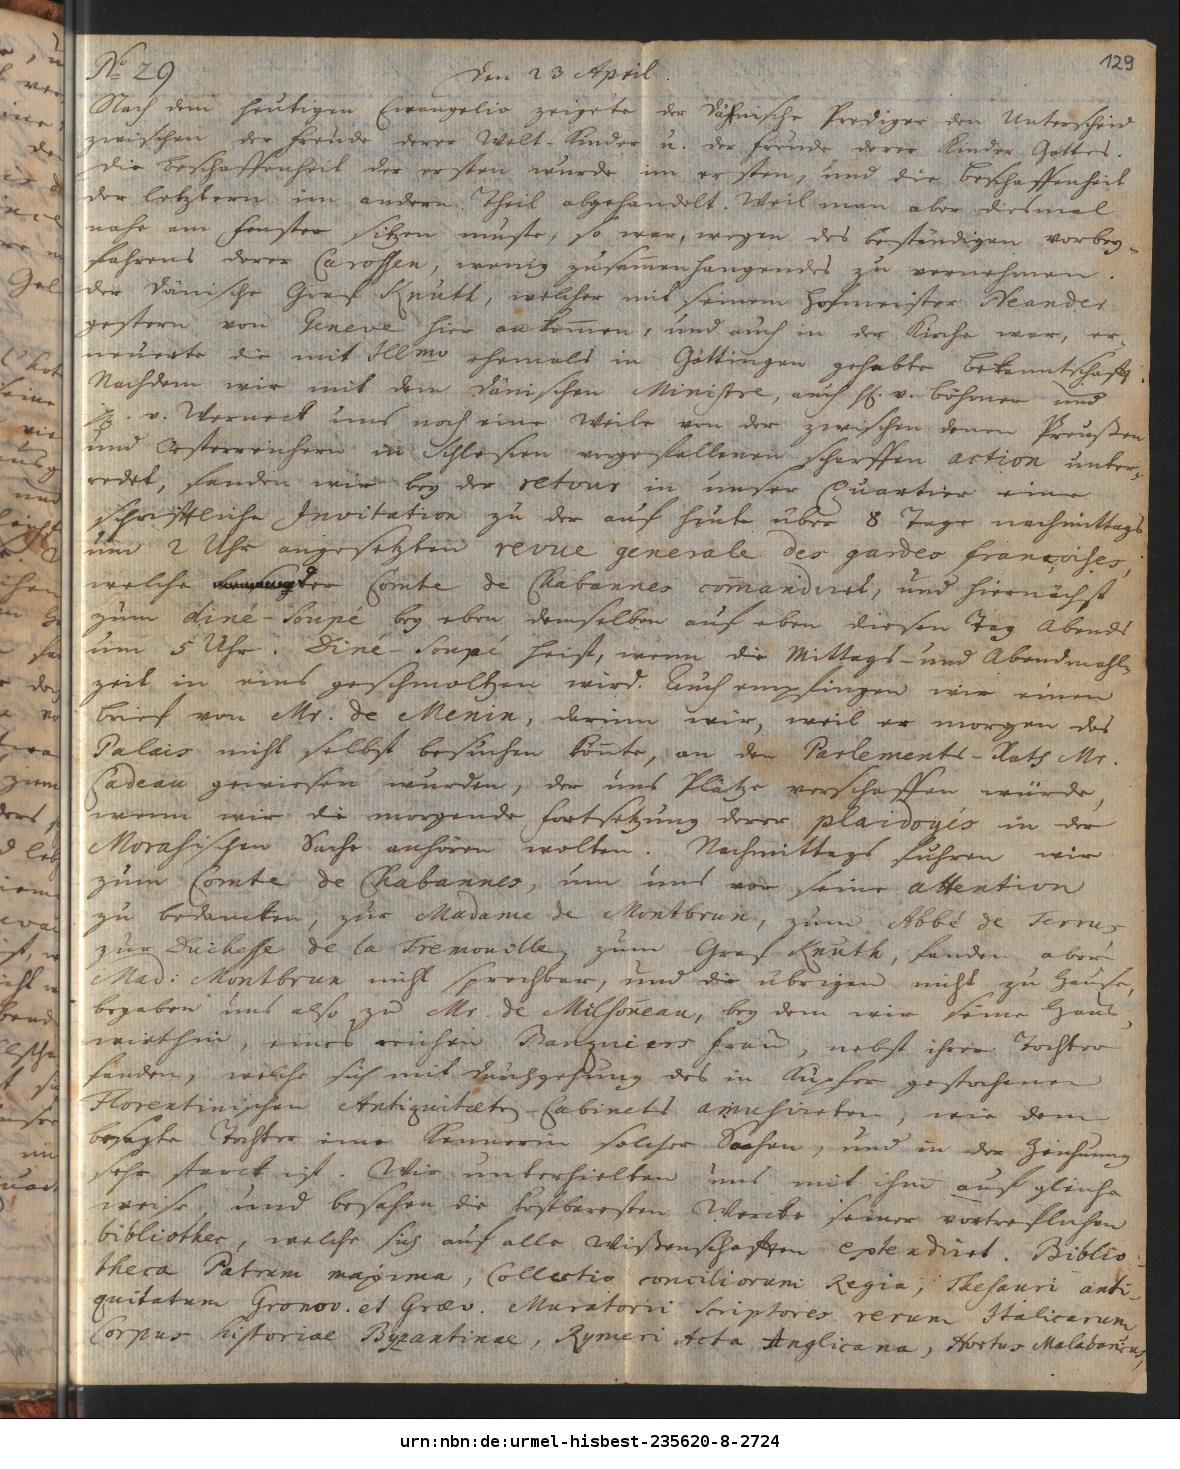 129
No 29 den 23 April.
Nach dem heutigen Evangelio zeigete der Dähnische Prediger den Unterscheid
zwischen der Freude derer Welt-Kinder u. der Freude derer Kinder Gottes.
Die Beschaffenheit der ersten wurde im ersten, und die Beschaffenheit
der letztern im andern Theil abgehandelt. Weil man aber diesmal
nahe am Fenster sitzen muste, so war, wegen des beständigen vorbey-
fahrens derer Carossen, wenig zusam̅enhangendes zu vernehmen.
der Dänische Graf Knutt, welcher mit seinem Hofmeister Neander
gestern von Geneve hier ankom̅en, und auch in der Kirche war, er-
neuerte die mit Illmo ehemals in Göttingen gehabte Bekanntschafft.
Nachdem wir mit dem dänischen Ministre, auch H. v. Böhmer und
H. v. Werneck uns noch eine Weile von der zwischen denen Preußen
und Oesterreichern in Schlesien vorgefallenen scharffen action unter-
redet, fanden wir bey der retour in unser Quartier eine
schrifftliche Invitation zu der auf heute über 8 Tage nachmittags
um 2 Uhr angesetzten revue generale des gardes françoises,
welche der Comte de Chabannes com̅andiret, und hiernächst
zum diné-soupé bey eben demselben auf eben diesen Tag Abends
um 5 Uhr. Diné-soupé heist, wenn die Mittags- und Abendmahl-
zeit in eins geschmoltzen wird. Auch empfingen wir einen
brief von Mr. de Menin, darinn wir, weil er morgen das
Palais nicht selbst besuchen kön̅te, an den Parlements-Rath Mr.
Cadeau gewiesen wurden, der uns Plätze verschaffen würde,
wenn wir die morgende Fortsetzung derer plaidoyés in der
Morasischen Sache anhören wolten. Nachmittags fuhren wir
zum Comte de Chabannes, um uns vor seine attention
zu bedancken, zur Madame de Montbrun, zum Abbé de Terrus
zur Duchesse de la Tremouille, zum Graf Knuth, fanden aber
Mad: Montbrun nicht sprechbar, und die übrigen nicht zu Hause,
begaben uns also zu Mr. de Milsoneau, bey dem wir seine Haus-
wirthin, eines reichen Banquiers Frau, nebst ihrer Tochter
fanden, welche sich mit durchgehung des in Kupfer gestochenen
Florentinischen Antiquitæten-Cabinets amusirten, wie dem
besagte Tochter eine Kennerin solcher Sachen, und in der Zeichnung
sehr starck ist. Wir unterhielten uns mit ihm auf gleiche
weise, und besahen die kostbaresten Wercke seiner vortreflichen
bibliothec, welche sich auf alle Wißenschafften extendiret. Biblio-
theca Patrum maxima, Collectio conciliorum Regia, Thesauri anti-
quitatum Gronov. et Græv. Muratorii Scriptores rerum Italicarum
Corpus historiae Byzantinae, Rymeri Acta Anglicana, Hortus Malabaricus,
urn:nbn:de:urmel-hisbest-235620-8-2724